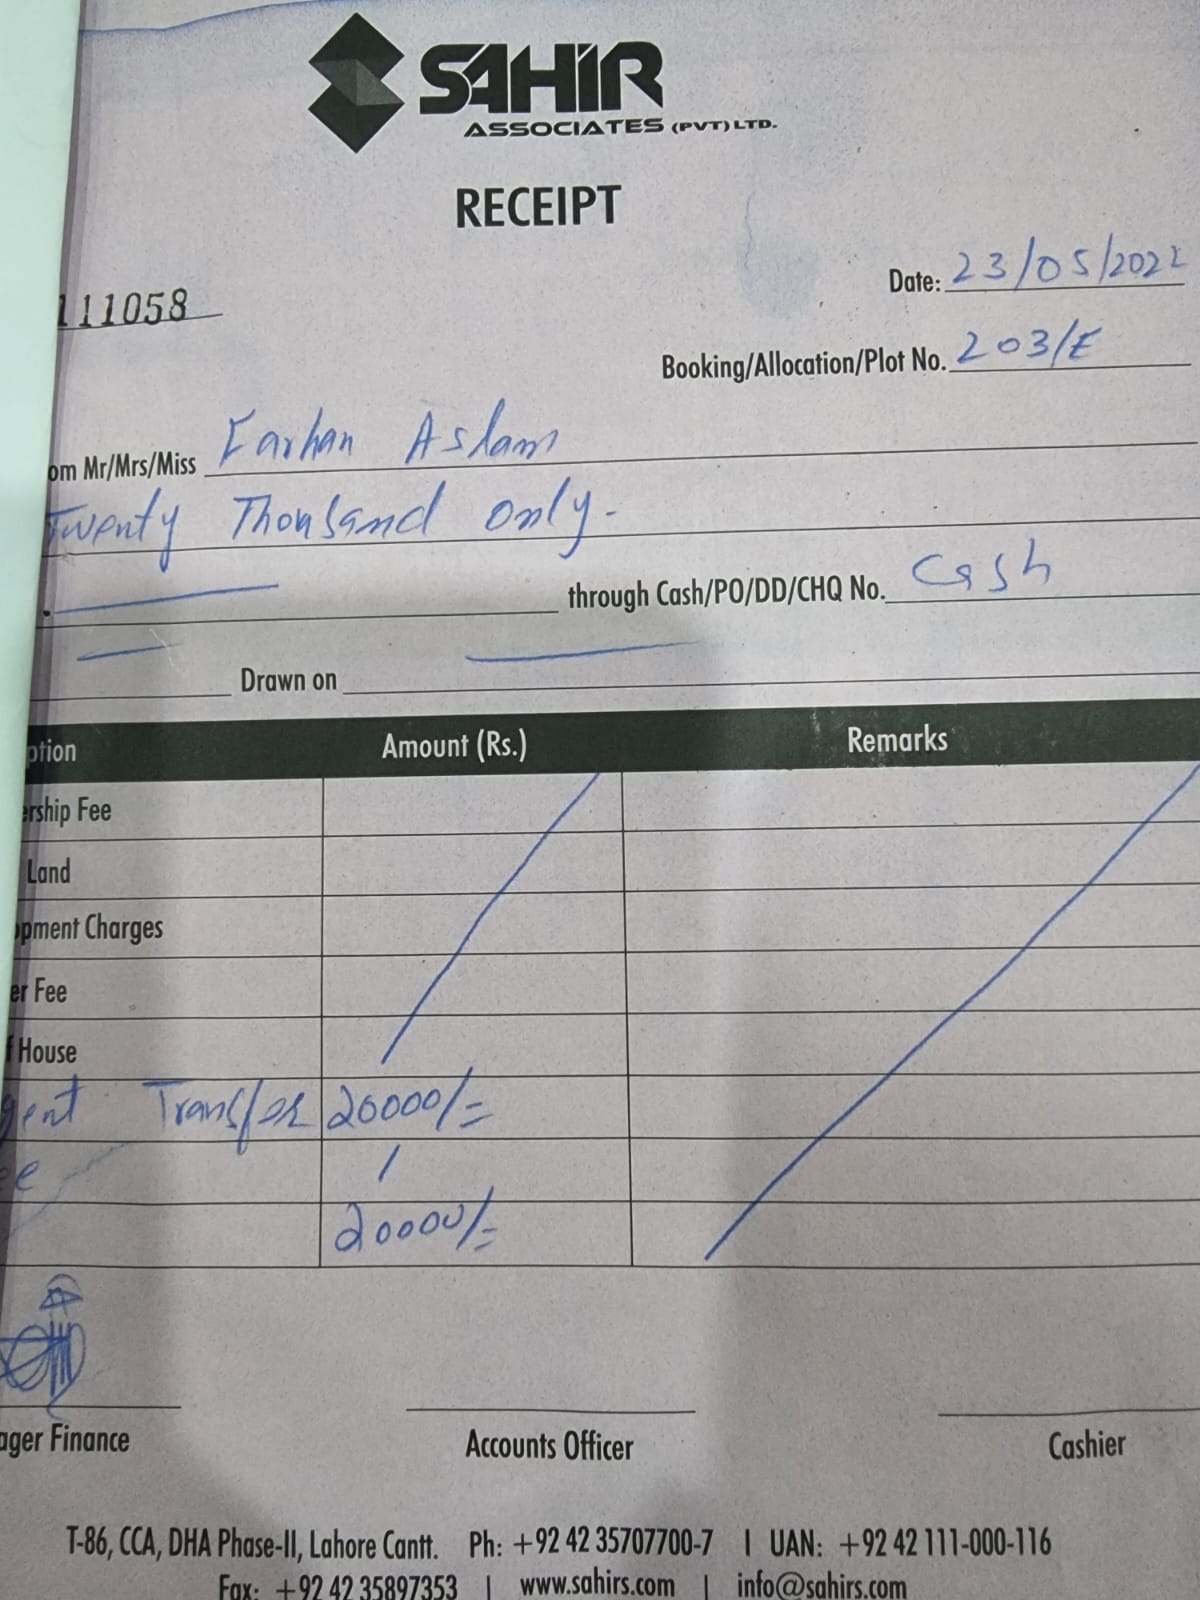 SAHIR
ASSOCIATES (PVT) LTD.
RECEIPT
111058
Date: 23/05/2022
Booking/Allocation/Plot No. 203/E
om Mr/Mrs/Miss Farhan Aslam
Twenty Thousand only.
through Cash/PO/DD/CHQ No. Cash
Drawn on
ption Amount (Rs.) Remarks
ership Fee
Land
opment Charges
er Fee
f House
gent Transfer 20000/=
ee
20000/=
ager Finance Accounts Officer Cashier
T-86, CCA, DHA Phase-II, Lahore Cantt. Ph: +92 42 35707700-7 | UAN: +92 42 111-000-116
Fax: +92 42 35897353 | www.sahirs.com | info@sahirs.com